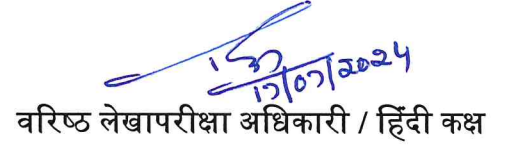 17/07/2024
वरिष्ठ लेखापरीक्षा अधिकारी / हिंदी कक्ष